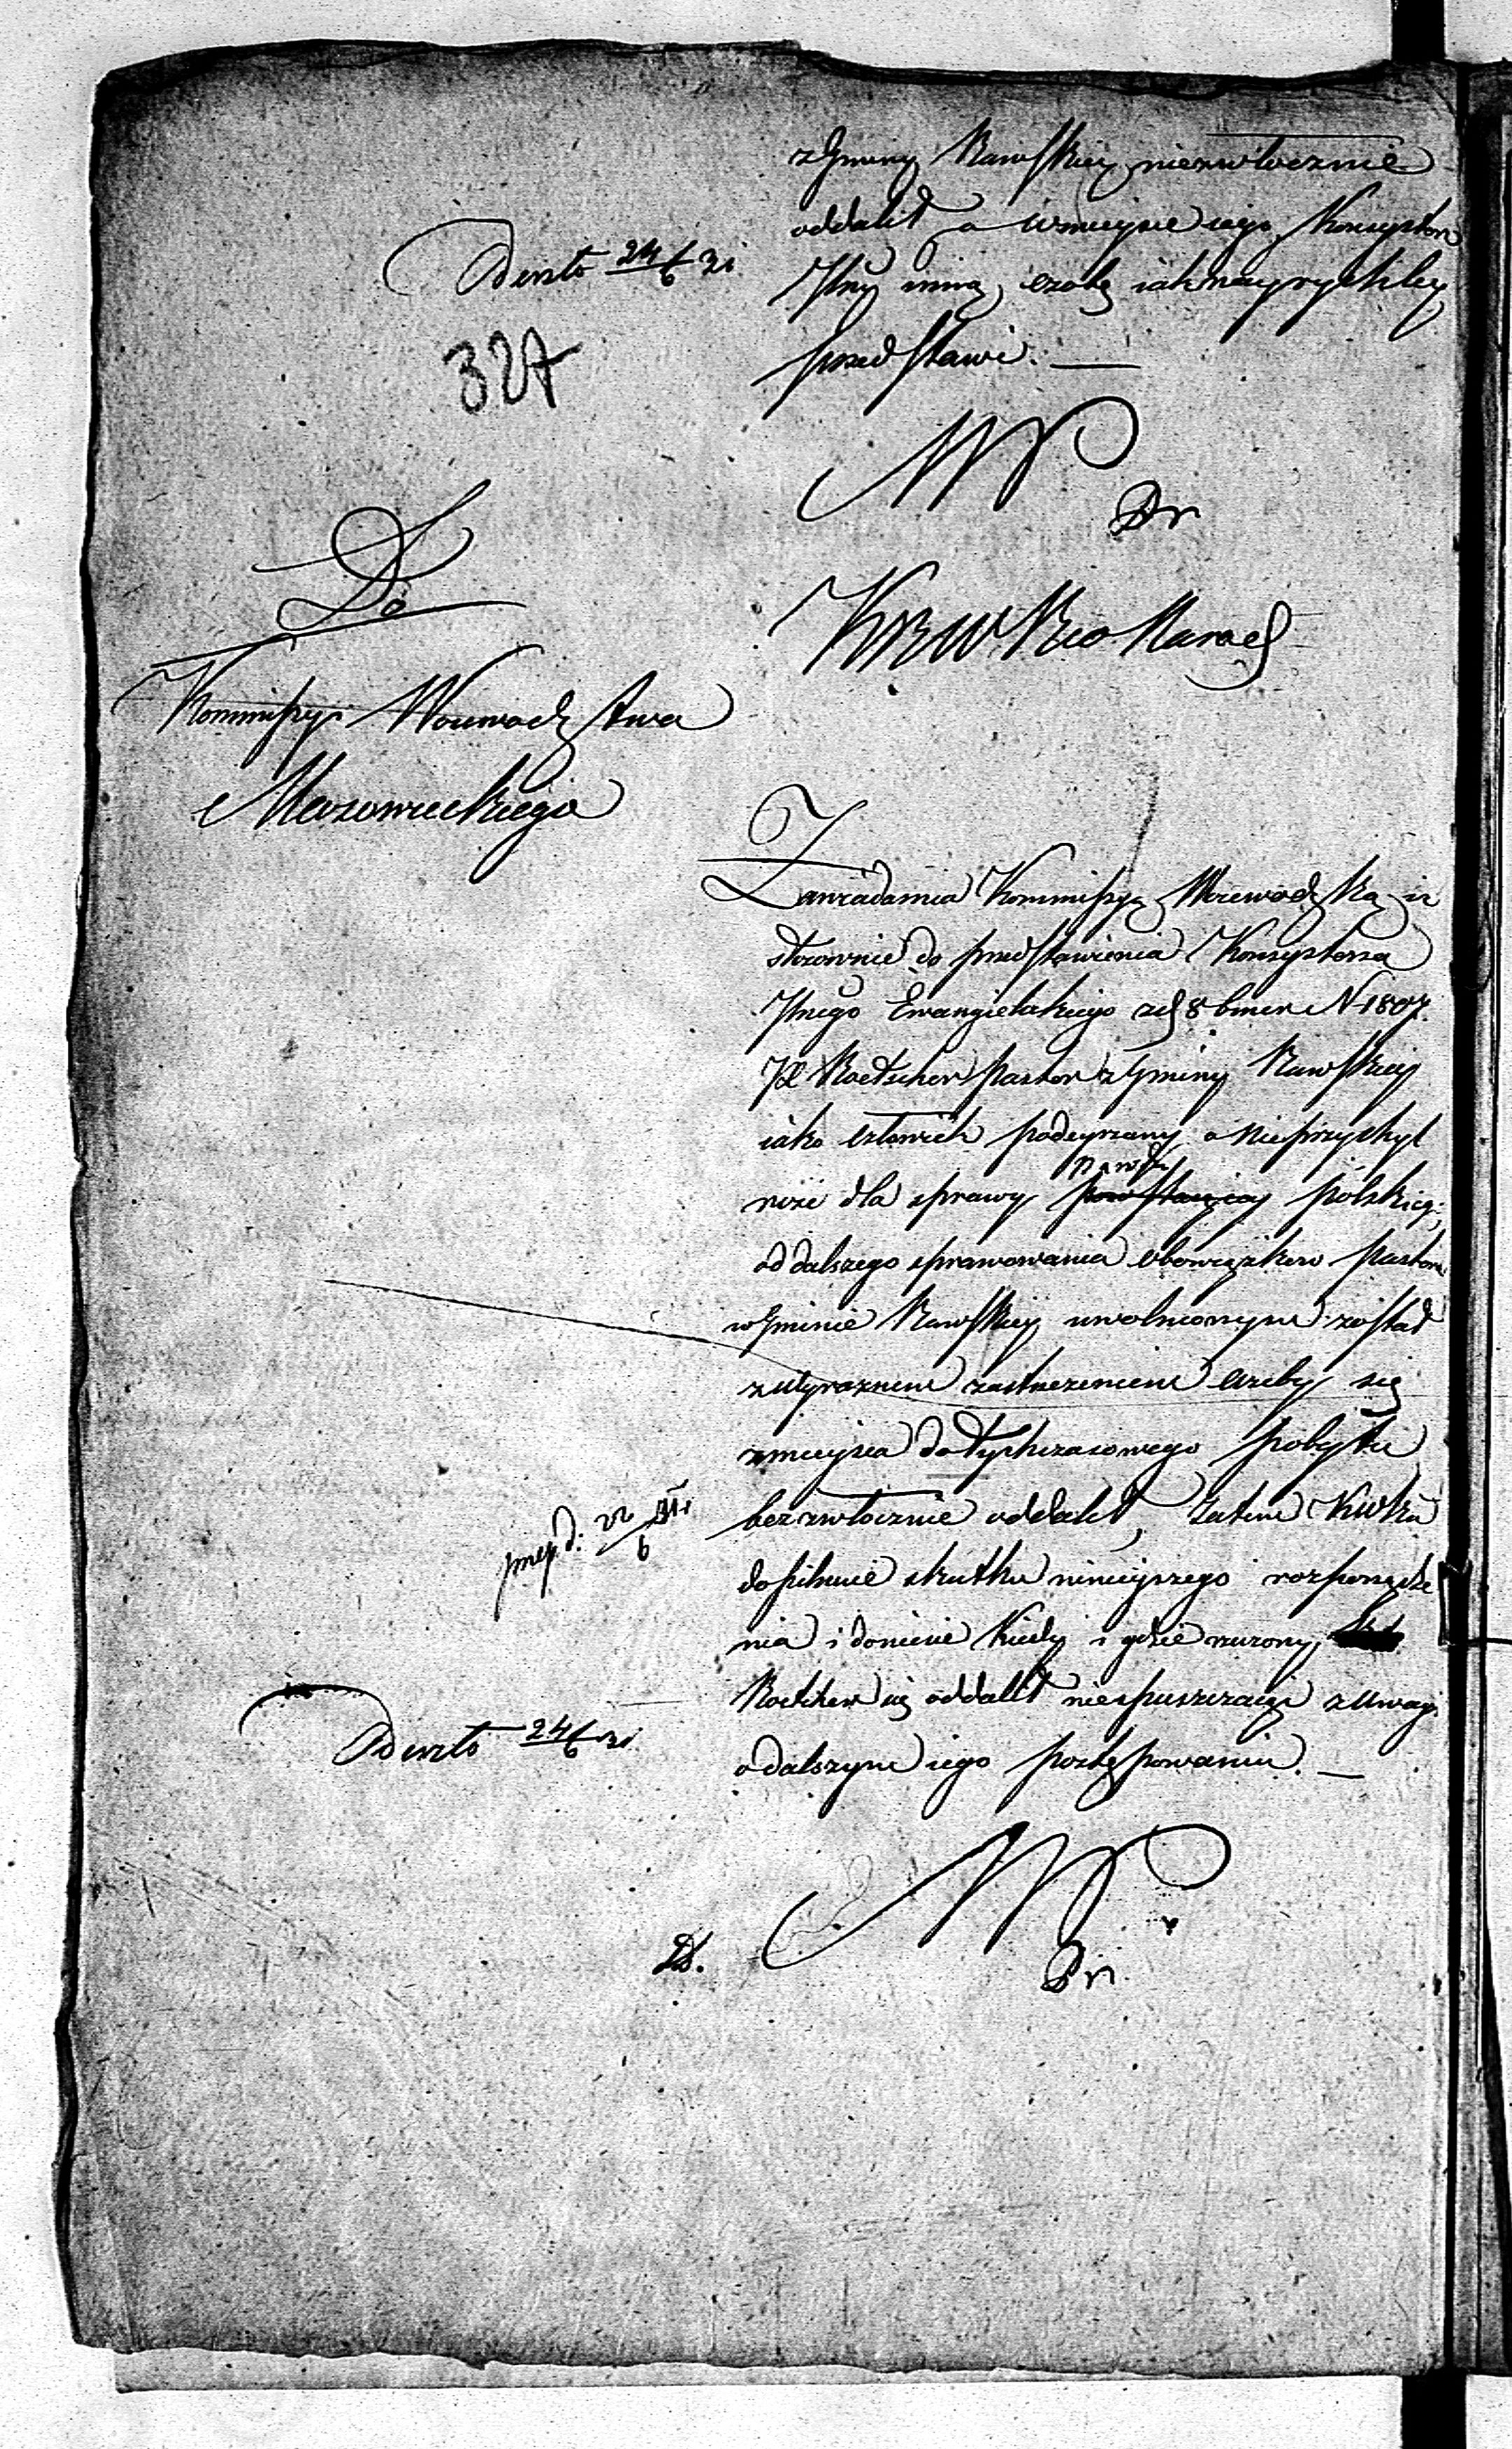 z Gminy Rawskiey niezwłocznie
oddalił a w mieysce iego Konsystorz
Jlny inną osobę iak nayrychley
przedstawi. —
Deszto 24/6 31
327
MP
Do
Kommissyi Woiewodztwa
Mazowieckiego
KRZW
Zawiadamia Kommissyą Woiewodzką iż
stosownie do przedstawienia Konsystorza
Jlnego Ewangielickiego z d 8 b m r N 1807.
JX Roetscher Pastor z Gminy Rawskiey
iako człowiek podeyrzany o nieprzychyl
ność dla sprawy powstańczey polskiey,
od dalszego sprawowania obowiązków Pastora
w Gminie Rawskiey uwolnionym został
z wyraznem zastrzeżeniem ażeby się
z mieysca dotychczasowego pobytu
bezzwłocznie oddalił, zatem KWka
dopilnuie skutku ninieyszego rozporządze
nia i doniesie kiedy i gdzie rzeczony
Roetscher się oddalił niespuszczaiąc z uwagi
o dalszym iego postępowaniu. —
d: 22/6 31
Deszto 24/6 31
MP